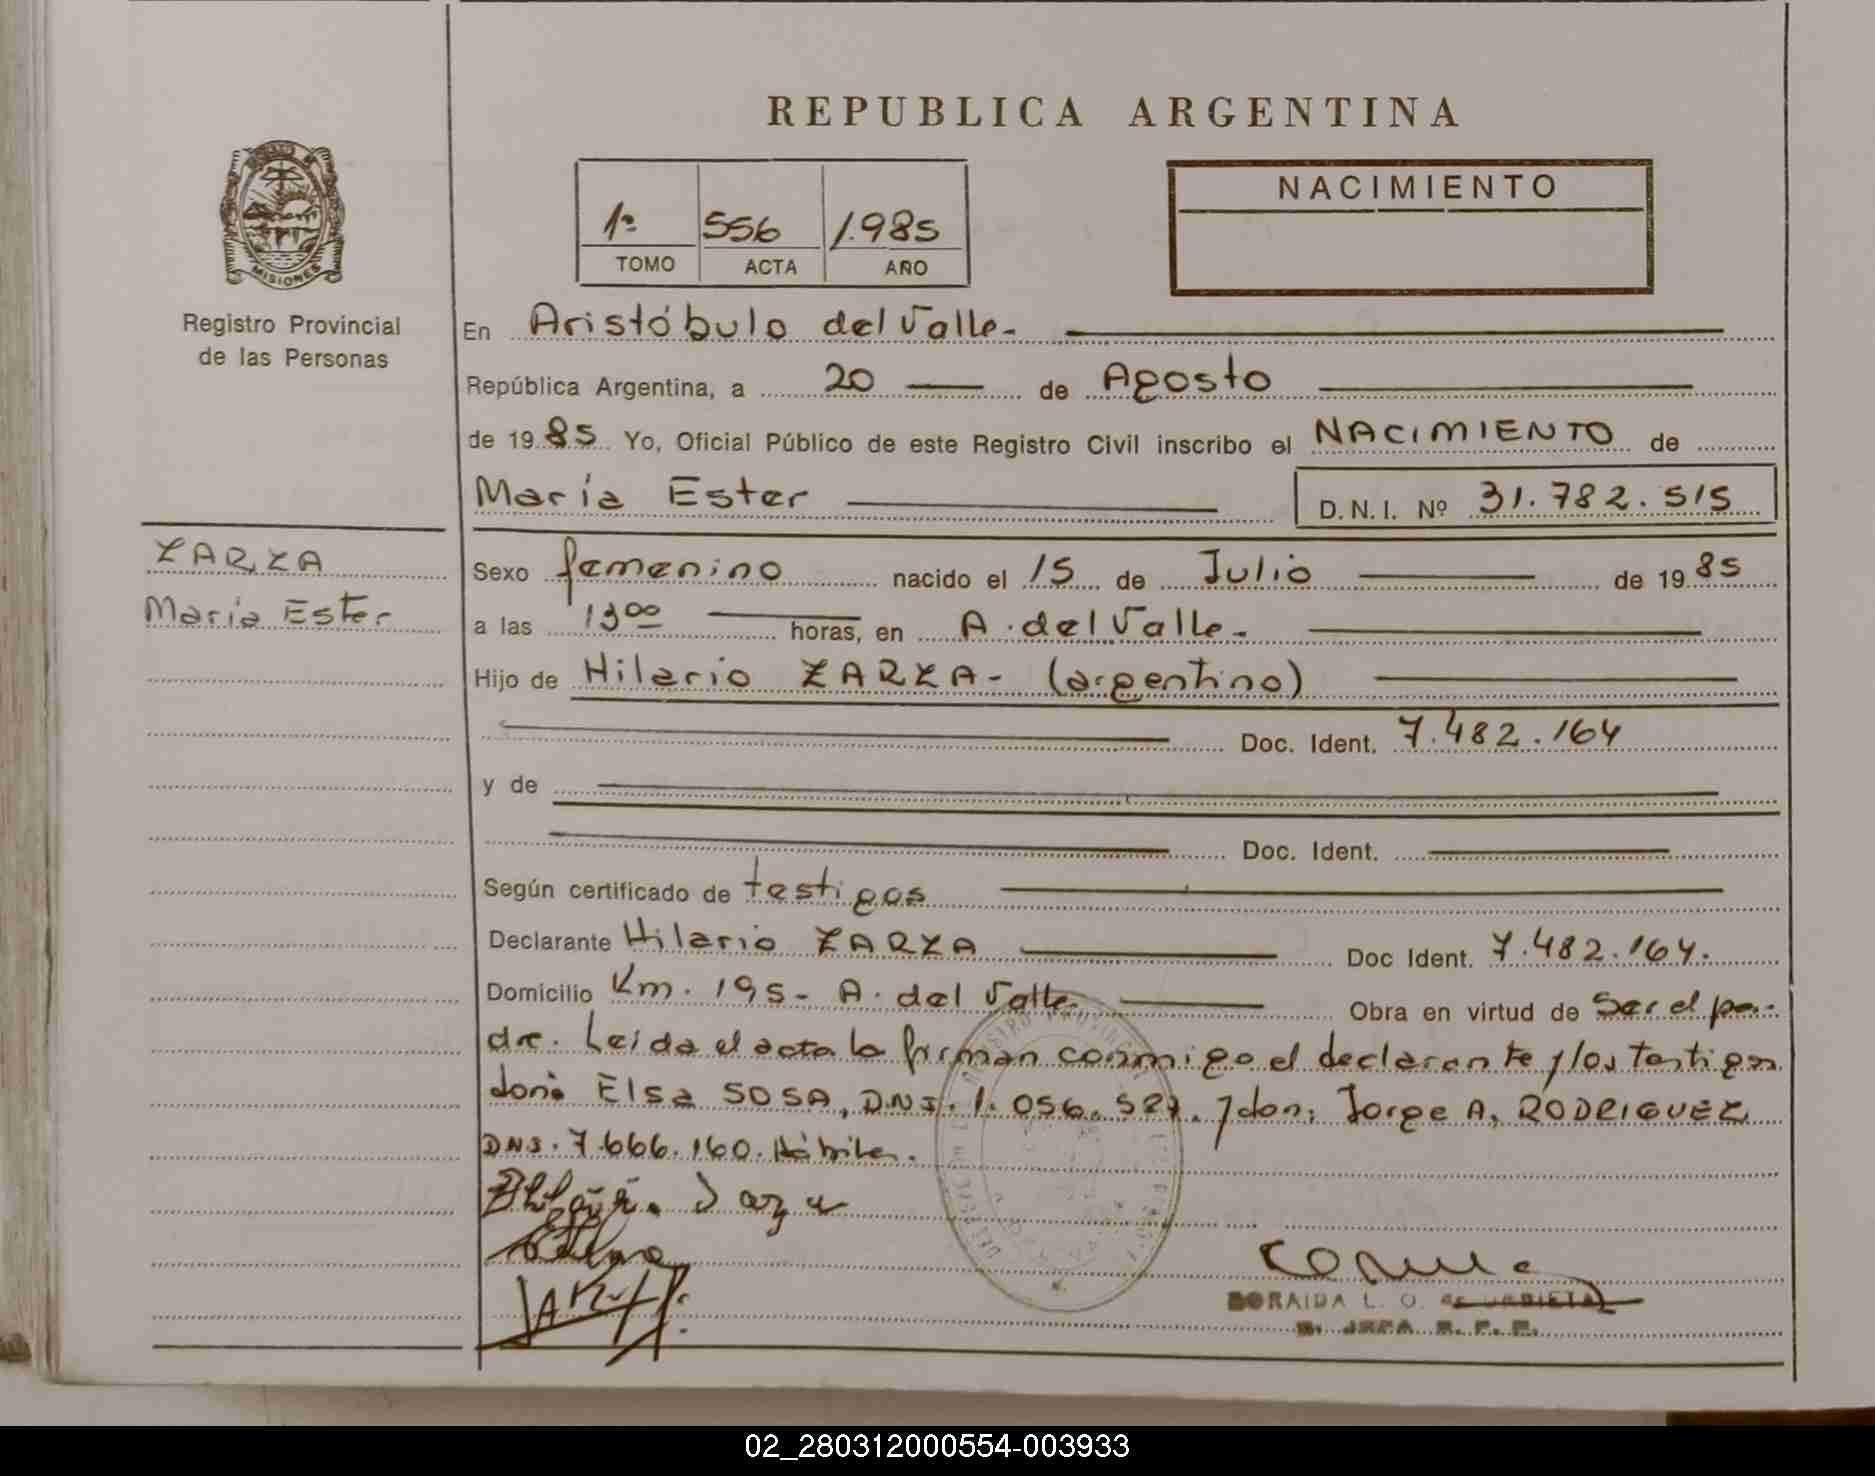 REPUBLICA ARGENTINA
NACIMIENTO
1º 556 1.985
TOMO ACTA AÑO
MISIONES
Registro Provincial
de las Personas
En Aristóbulo del Valle-
República Argentina, a 20 de Agosto
de 1985 Yo, Oficial Público de este Registro Civil inscribo el NACIMIENTO de
María Ester D.N.I. Nº 31.782.515
ZARZA
María Ester
Sexo femenino nacido el 15 de Julio de 1985
a las 1300 horas, en A. del Valle-
Hijo de Hilario ZARZA- (argentino)
Doc. Ident. 7.482.164
y de
Doc. Ident.
Según certificado de testigos
Declarante Hilario ZARZA Doc Ident. 7.482.164.
Domicilio Km. 195- A. del Valle- Obra en virtud de Ser el pa-
dre. Leída el acta la firman conmigo el declarante y los testigos
doña Elsa SOSA, DNI. 1.056.527. y don: Jorge A. RODRIGUEZ
DNI. 7.666.160. Hábiles.
ZORAIDA L. O. de URBIETA
JEFA R. P. P.
02_280312000554-003933